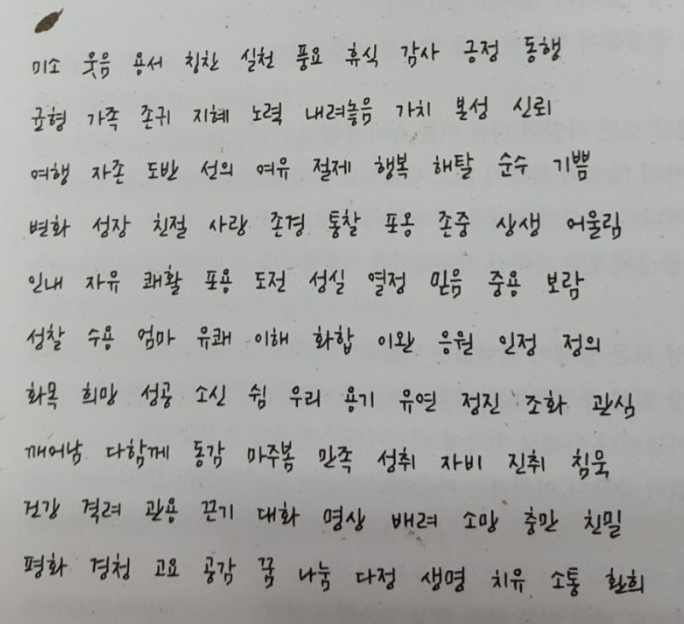 미소 웃음 용서 칭찬 실천 풍요 휴식 감사 긍정 동행
균형 가족 존귀 지혜 노력 내려놓음 가치 본성 신뢰
여행 자존 도반 선의 여유 절제 행복 해탈 순수 기쁨
변화 성장 친절 사랑 존경 통찰 포옹 존중 상생 어울림
인내 자유 쾌활 포용 도전 성실 열정 믿음 중용 보람
성찰 수용 엄마 유쾌 이해 화합 이완 응원 인정 정의
화목 희망 성공 소신 쉼 우리 용기 유연 정진 조화 관심
깨어남 다함께 동감 마주봄 만족 성취 자비 진취 침묵
건강 격려 관용 끈기 대화 명상 배려 소망 충만 친밀
평화 경청 고요 공감 꿈 나눔 다정 생명 치유 소통 환희